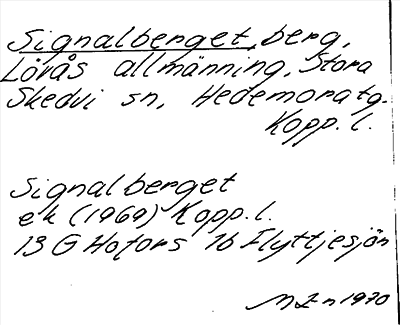 Signalberget, berg,
Lövås allmänning, Stora
Skedvi sn, Hedemora tg.
Kopp. l.
Signalberget
ek (1969) Kopp. l.
13 G Hofors 7b Flyttjesjön
1970